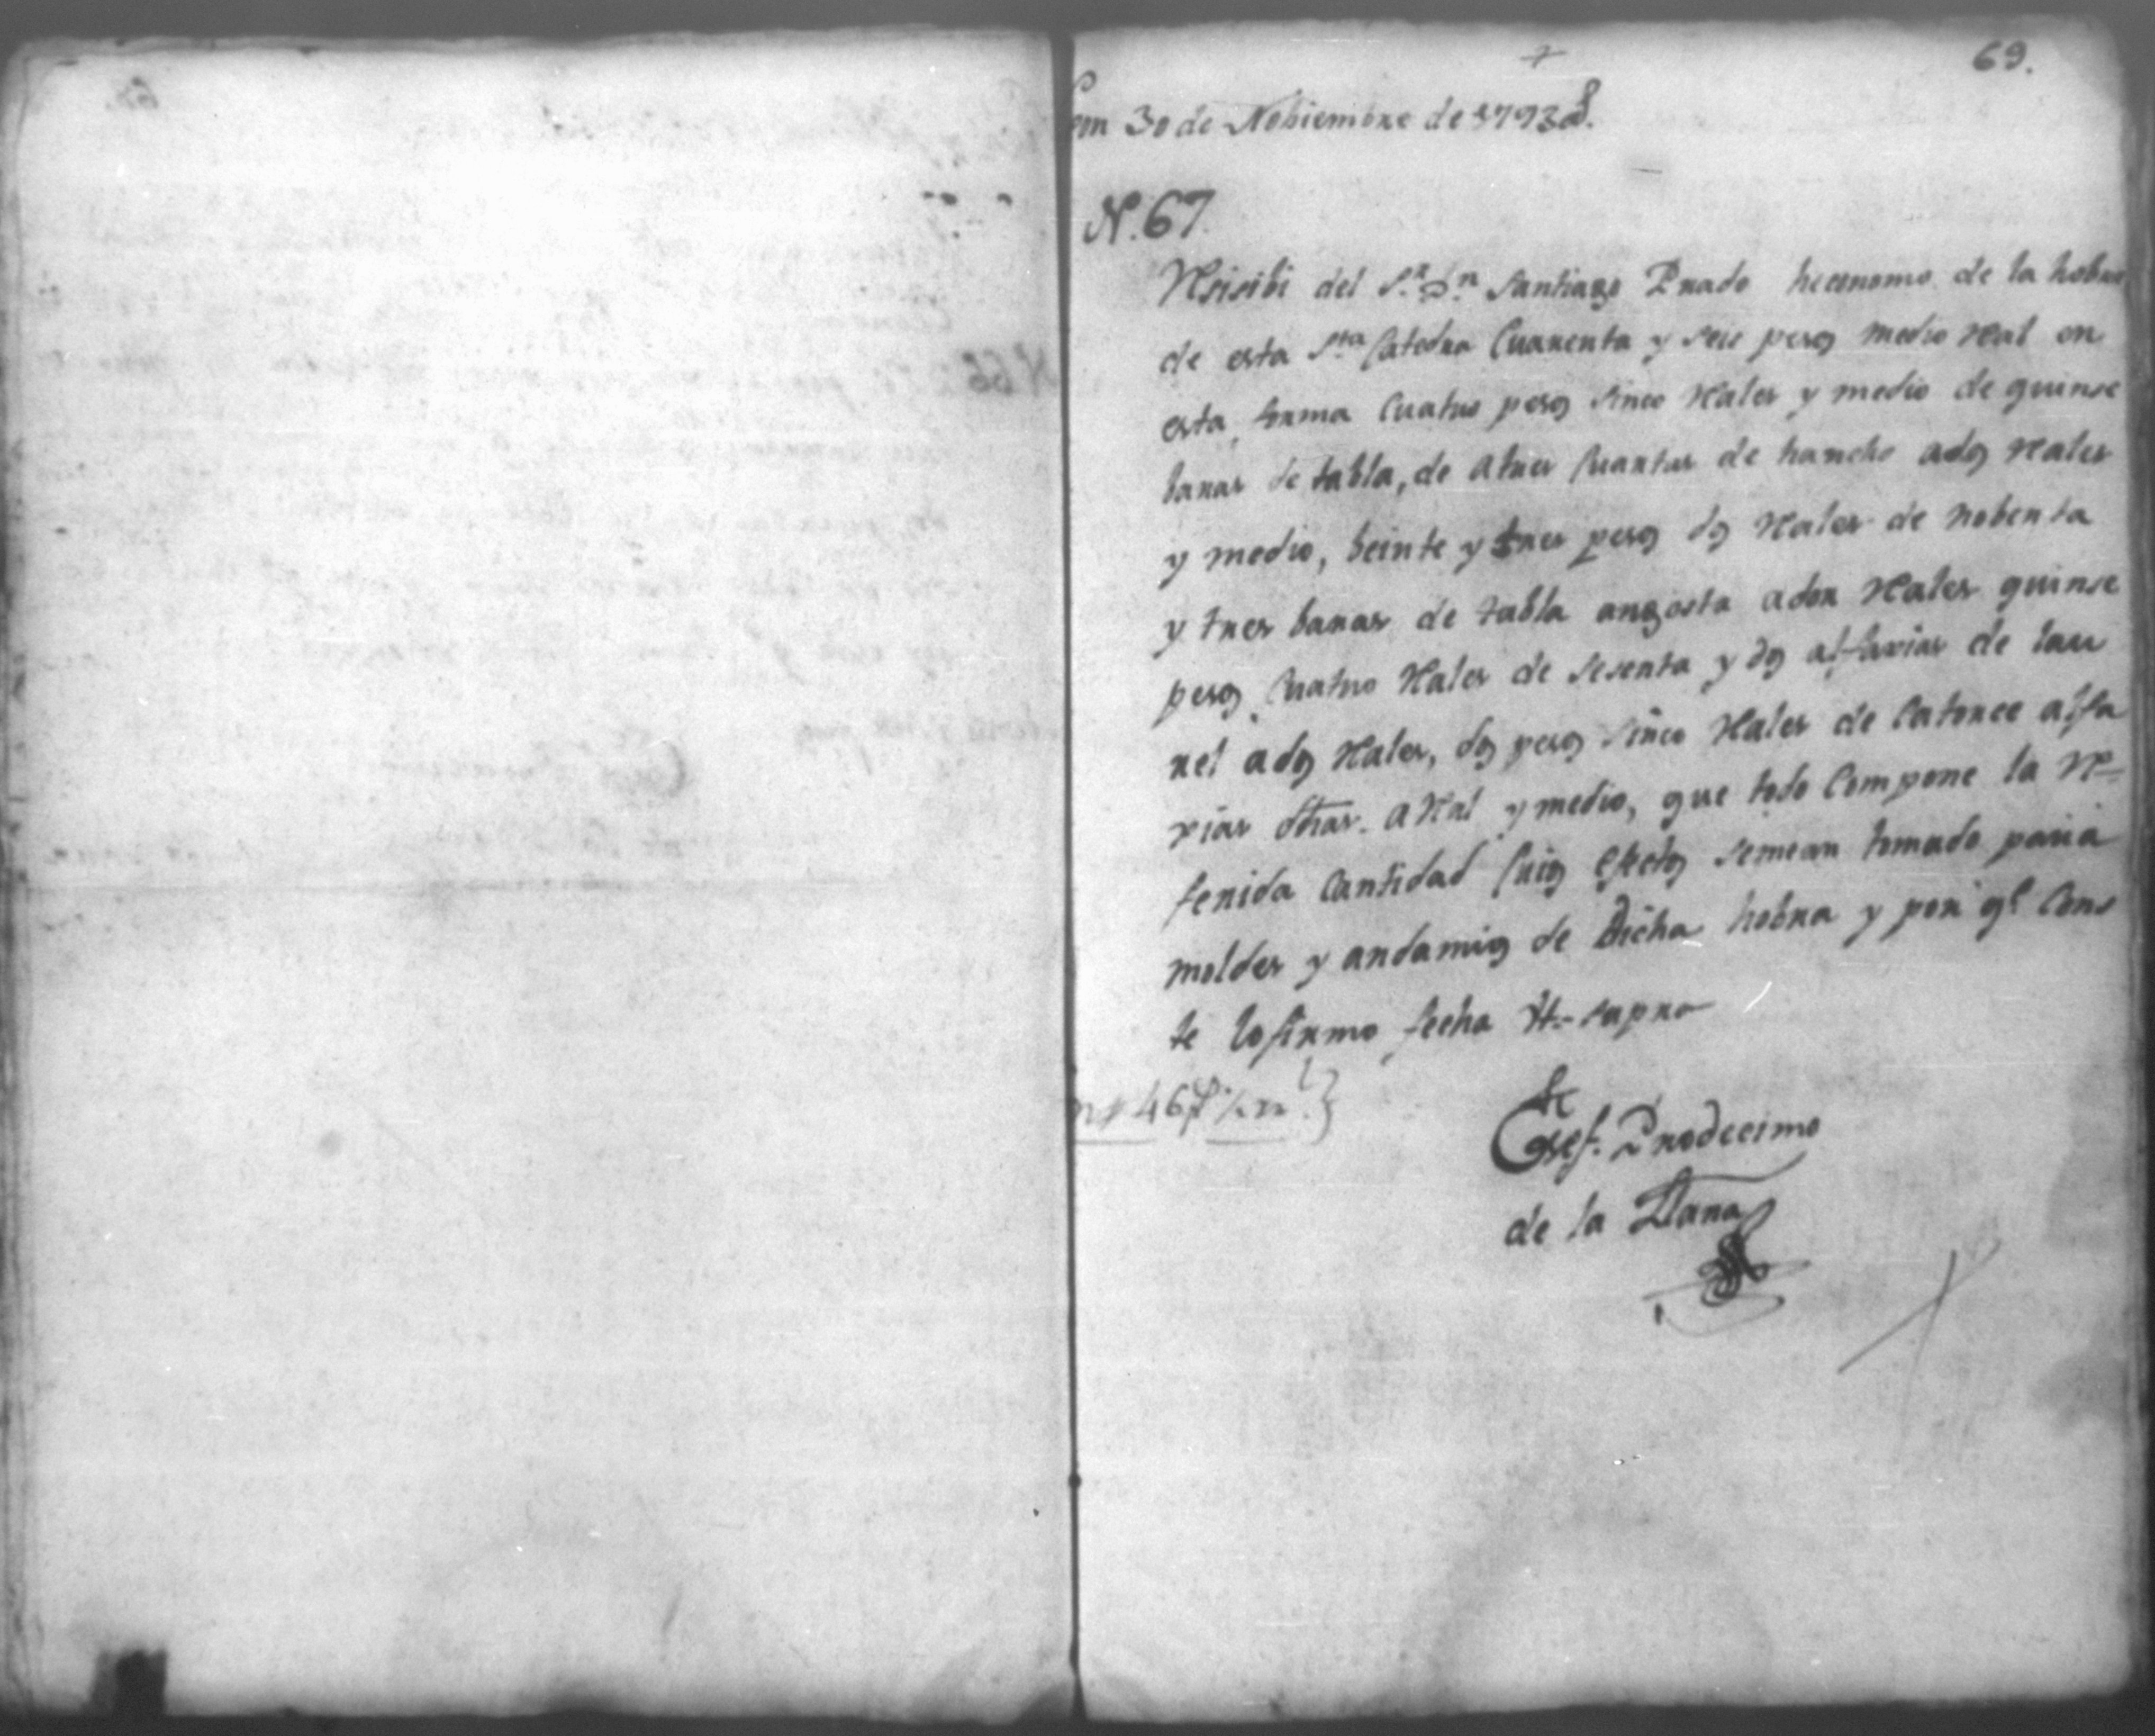 +
69.
Leon 30 de Nobiembre de 1793 a.s
N. 67
Resisibi del S.r D.n Santiago Prado heconomo de la hobra
de esta S.ta Catedra Cuarenta y seis pesos medio Real en
esta forma Cuatro pesos sinco Rales y medio de quinse
baras de tabla, de atres Cuartas de hancho ados rales
y medio, beinte y tres pesos dos Rales de nobenta
y tres baras de tabla angosta ados Rales quinse
pesos Cuatro Rales de sesenta y dos alfarias de lau
rel ados Rales, dos pesos sinco Rales de Catorce alfa
rias dhas. a Ral y medio, que todo Compone la Re=
ferida Cantidad Cuios efectos semean tomado para
moldes y andamios de Dicha hobra y por q.e Cons
te lo firmo fecha Ut-supra
46 p.s ½ rr.l }
Josef. Prodecimo
de la Llana